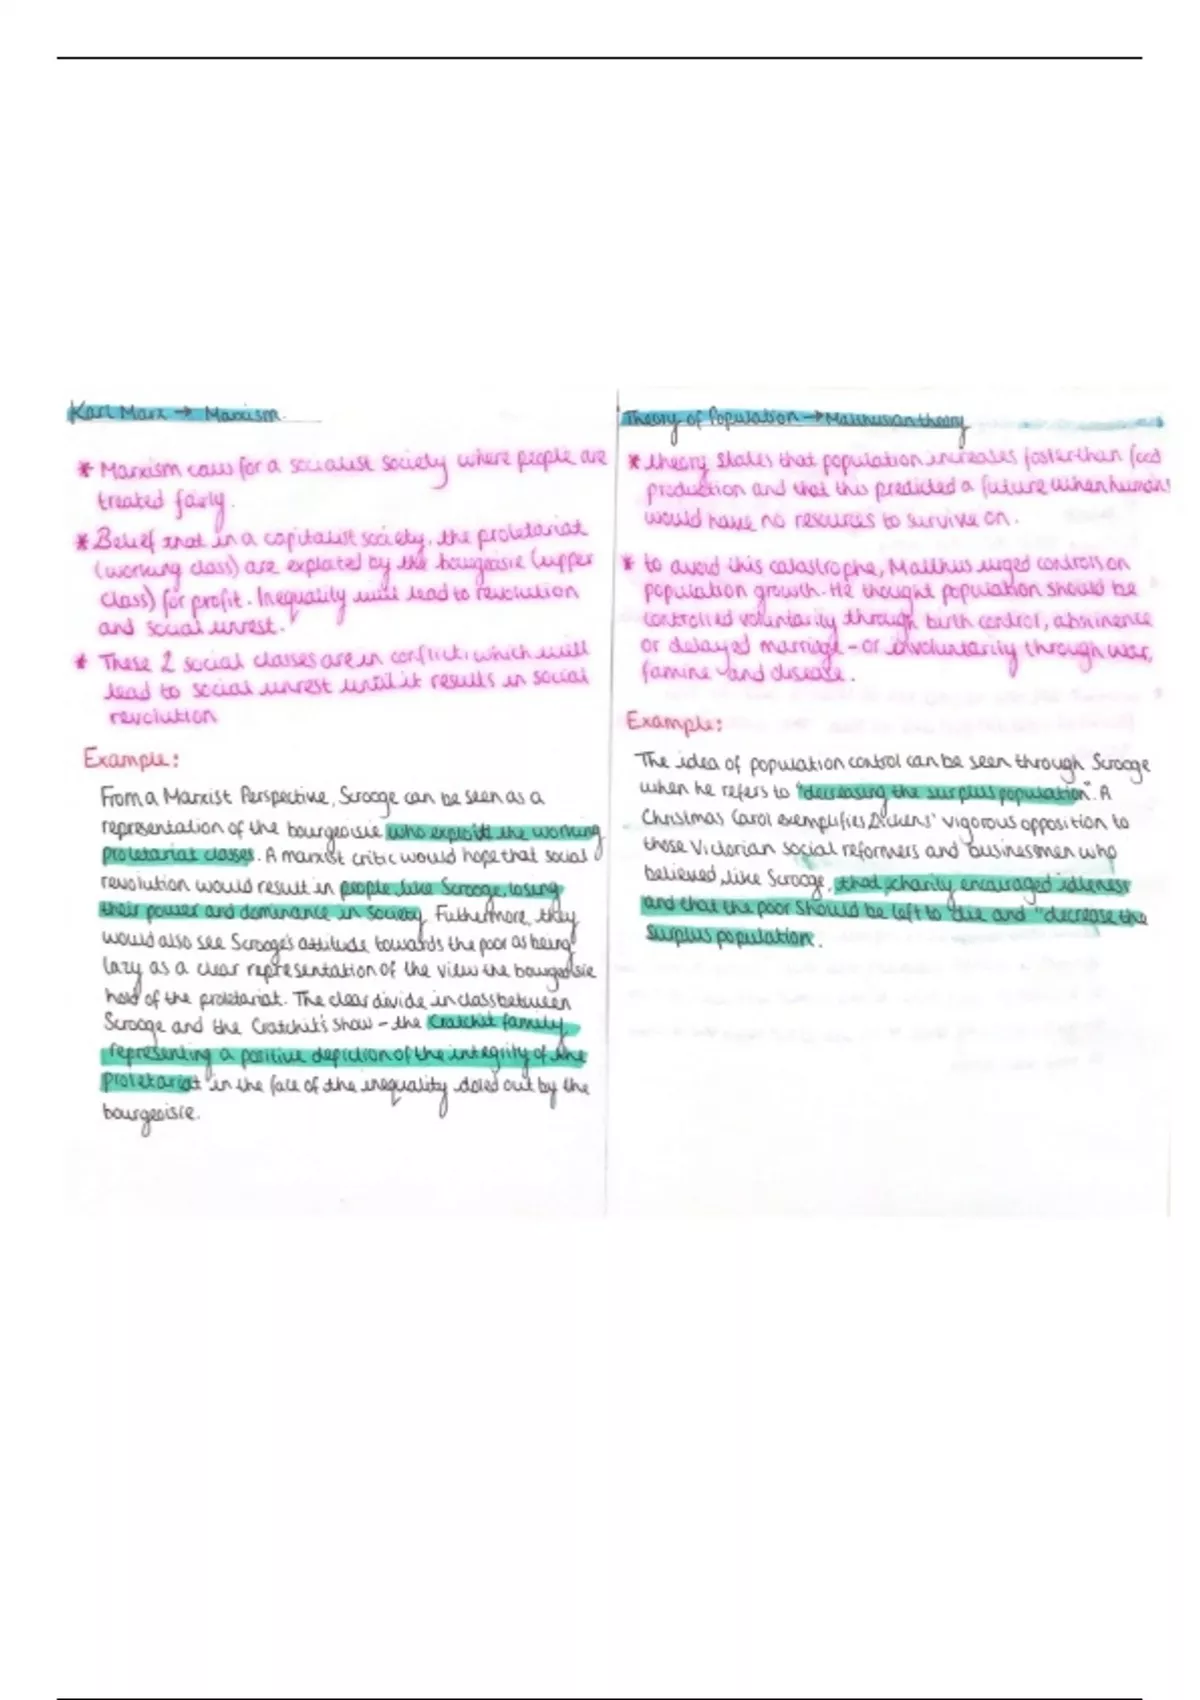 Karl Marx → Marxism.
* Marxism calls for a socialist society where people are
treated fairly.
* Belief that in a capitalist society, the proletariat
(working class) are exploited by the bourgeoisie (upper
class) for profit. Inequality will lead to revolution
and social unrest.
* These 2 social classes are in conflict, which will
lead to social unrest until it results in social
revolution
Example:
From a Marxist Perspective, Scrooge can be seen as a
representation of the bourgeoisie who exploit the working
proletariat classes. A marxist critic would hope that social
revolution would result in people like Scrooge, losing
their power and dominance in society. Futhermore, they
would also see Scrooge's attitude towards the poor as being
lazy as a clear representation of the view the bourgeoisie
hold of the proletariat. The clear divide in class between
Scrooge and the Cratchit's show - the Cratchit family
representing a positive depiction of the integrity of the
proletariat in the face of the inequality doled out by the
bourgeoisie.
Theory of Population → Malthusian theory
* theory states that population increases faster than food
production and that this predicted a future when humans
would have no resources to survive on.
* to avoid this catastrophe, Malthus urged controls on
population growth. He thought population should be
controlled voluntarily through birth control, abstinence
or delayed marriage - or involuntarily through war,
famine and disease.
Example:
The idea of population control can be seen through Scrooge
when he refers to "decreasing the surplus population". A
Christmas Carol exemplifies Dickens' vigorous opposition to
those Victorian social reformers and businessmen who
believed, like Scrooge, that charity encouraged idleness
and that the poor should be left to die and "decrease the
surplus population.